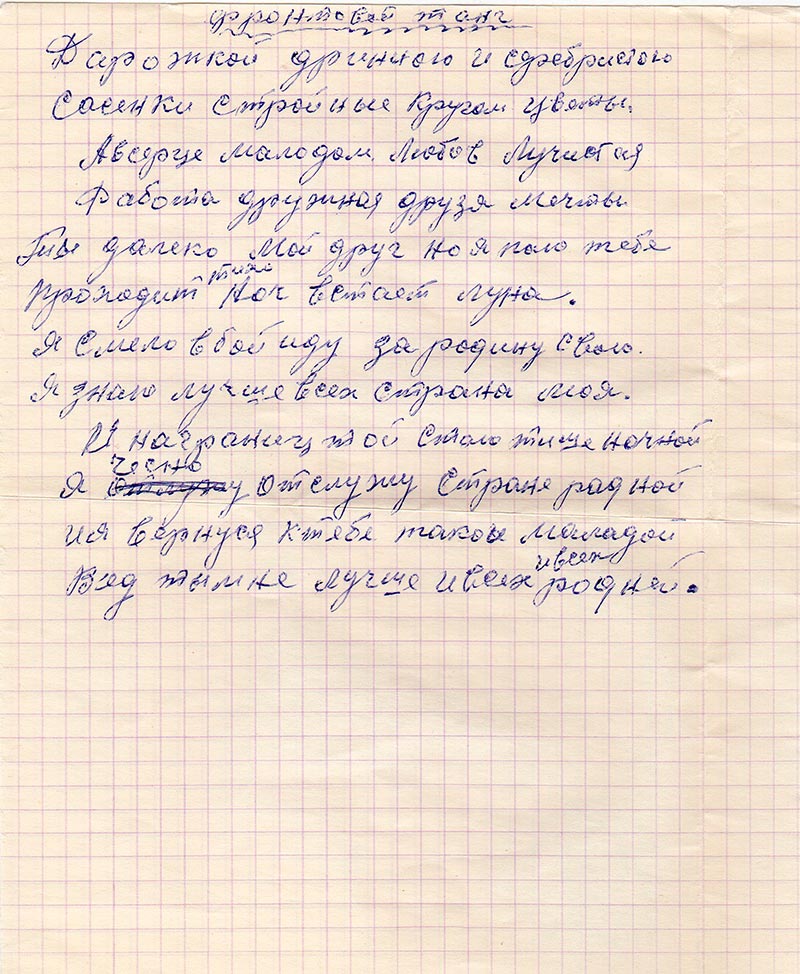 фронтовой танг
Дарожкой длинною и сдребристою
Сасенки стройные кругом цветы.
Авсерце маладом. Любов Лучистая
Работа дружная друзя мечты
Ты далеко Мой друг но я паю тебе
тихо
проходит Ноч встает луна.
Я Смело вбой иду за родину свою.
Я знаю лучше всех страна моя.
И награниц той стаю тише ночной
чесно
Я отслужу Стране радной
ия вернуся ктебе такой маладой
ивсех
Вед тымне лучше ивсех родней.